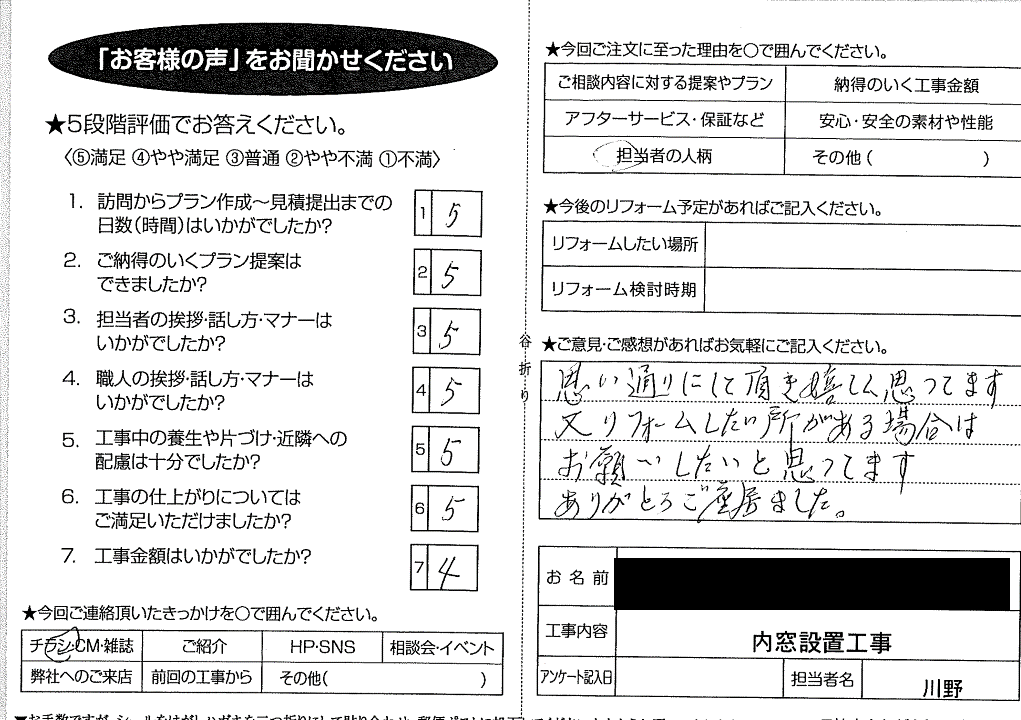 「お客様の声」をお聞かせください
★5段階評価でお答えください。
〈⑤満足 ④やや満足 ③普通 ②やや不満 ①不満〉
1. 訪問からプラン作成～見積提出までの
日数(時間)はいかがでしたか?
1 5
2. ご納得のいくプラン提案は
できましたか?
2 5
3. 担当者の挨拶・話し方・マナーは
いかがでしたか?
3 5
4. 職人の挨拶・話し方・マナーは
いかがでしたか?
4 5
5. 工事中の養生や片づけ・近隣への
配慮は十分でしたか?
5 5
6. 工事の仕上がりについては
ご満足いただけましたか?
6 5
7. 工事金額はいかがでしたか?
7 4
★今回ご連絡頂いたきっかけを○で囲んでください。
チラシ・CM・雑誌 ご紹介 HP・SNS 相談会・イベント
弊社へのご来店 前回の工事から その他( )
谷折り
★今回ご注文に至った理由を○で囲んでください。
ご相談内容に対する提案やプラン 納得のいく工事金額
アフターサービス・保証など 安心・安全の素材や性能
担当者の人柄 その他( )
★今後のリフォーム予定があればご記入ください。
リフォームしたい場所
リフォーム検討時期
★ご意見・ご感想があればお気軽にご記入ください。
思い通りにして頂き嬉しく思ってます
又リフォームしたい所がある場合は
お願いしたいと思ってます
ありがとうご座居ました。
お名前
工事内容 内窓設置工事
アンケート記入日 担当者名 川野